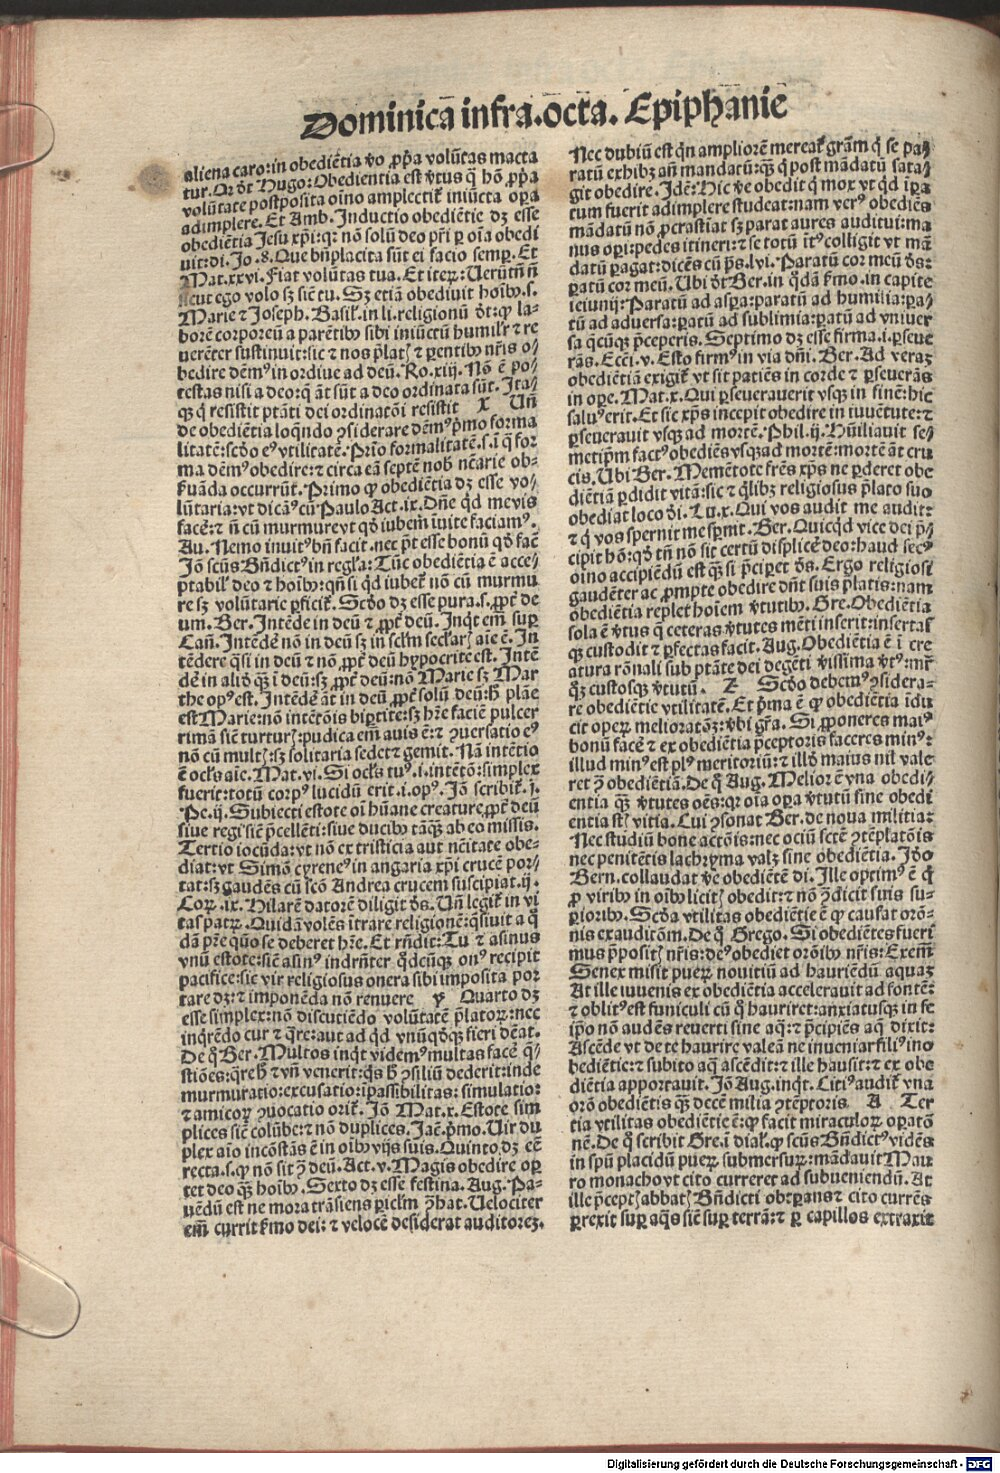 Dominicā infra.octa. Epiphanie
aliena caro:in obediētia v̄o ꝓp̄a volūtas macta
tur. Or d̄t Hugo:Obedientia est v̄tus q̄ hō ꝓp̄a
volūtate postposita oīno amplectit᷑ iniūcta oꝑa
adimplere. Et Amb. Inductio obediētie dꝫ esse
obediētia Jesu xp̄i:qꝛ nō solū deo p̄ri ꝑ oīa obedi
uit:di. Jo.8. Que bn̄placita sūt ei facio semꝑ. Et
Mat.xxvi. Fiat volūtas tua. Et iteꝝ:Uerūtn̄ n̄
sicut ego volo sꝫ siē tu. Sꝫ etiā obediuit hoīb᷒.s.
Marie ⁊ Joseph. Basil᷑.in li.religionū d̄t:ꝙ la-
borē corporeū a parētib᷒ sibi iniūctū humilr̄ ⁊ re
uerēter sustinuit:sic ⁊ nos p̄latꝭ ⁊ ꝑentib᷒ nr̄is o/
bedire dēm᷒ in ordiue ad deū. Ro.xiij. Nō ē po/
testas nisi a deo:q̄ āt sūt a deo ordinata sūt. Ita/
qꝫ q̄ resistit ptāti dei ordinatōi resistit X Un̄
de obediētia loq̄ndo ꝯsiderare dēm᷒ p̄mo forma
litatē:scd̄o e᷒ vtilitatē. Prīo formalitatē.s.ī q̄ for
ma dēm᷒ obedire:⁊ circa eā septē nob̄ nc̄arie ob-
f̄uāda occurrūt. Primo ꝙ obediētia dꝫ esse vo/
lūtaria:vt dicā᷒ cū Paulo Act.ix. Dn̄e qd̄ me vis
facē:⁊ n̄ cū murmure vt qd̄ iubem᷑ īuite faciam᷒.
Au. Nemo inuit᷒ bn̄ facit.nec p̄t esse bonū qd̄ facē
Jō scūs Bn̄dict᷒ in regl̄a:Tūc obediētia ē acce/
ptabil᷑ deo ⁊ hoīb᷒:qn̄ si qd̄ iubet᷑ nō cū murmu
re sꝫ volūtarie ꝑficit᷑. Scd̄o dꝫ esse pura.s.ꝓpt̄ de
um. Ber. Intēde in deū ⁊ ꝓpt̄ deū. Inq̄t em̄ suꝑ
Cān̄. Intēdē nō in deū sꝫ in sclm̄ seclarꝭ aīe ē. In
tēdere q̄si in deū ⁊ nō ꝓpt̄ deū hypocrite est. Intē
dē in aliq̄ qꝫ ī deū:sꝫ ꝓpt̄ deū:nō Marie sꝫ Mar
the op᷒ est. Intēdē āt in deū ꝓpt̄ solū deū:h̄ plāe
est Marie:nō intētōis biꝑtite:sꝫ hr̄e faciē pulcer
rimā siē turturꝭ:pudica em̄ auis ē:⁊ ꝯuersatio e᷒
nō cū multꝭ:sꝫ solitaria sedet ⁊ gemit. Nā intētio
ē ocl̄s aīe. Mat.vi. Si ocl̄s tu᷒.i.intētō:simplex
fuerit:totū corp᷒ lucidū erit.i.op᷒. Jō scribit᷑.j.
Pe.ij. Subiecti estote oī hūane creature ꝓpt̄ deū
siue regi siē p̄cellēti:siue ducib᷒ tāqꝫ ab eo missis.
Tertio iocūda:vt nō ex tristicia aut nc̄itate obe-
diat:vt Simō cyrene᷒ in angaria xp̄i crucē por/
tat:sꝫ gaudēs cū sc̄o Andrea crucem suscipiat.ij.
Coꝝ.ix. Hilarē datorē diligit d̄s. Un̄ legit᷑ in vi
tas patꝝ. Quidā volēs ītrare religionē:q̄siuit a q̄
dā pr̄e quo se deberet hr̄e. Et rn̄dit:Tu ⁊ asinus
vnū estote:siē asin᷒ indrn̄ter q̄dcūqꝫ on᷒ recipit
pacifice:sic vir religiosus onera sibi imposita por
tare dꝫ:⁊ imponēda nō renuere y Quarto dꝫ
esse simplex:nō discutiēdo volūtatē p̄latoꝝ:nec
inq̄rēdo cur ⁊ q̄re:aut ad qd̄ vnūqd̄qꝫ fieri dēat.
De q̄ Ber. Multos inq̄t videm᷒ multas facē q̄/
stiōes:q̄re h̄ ⁊ vn̄ venerit:q̄s h̄ ꝯsiliū dederit:inde
murmuratio:excusatio:īpassibilitas:simulatio:
⁊ amicoꝝ ꝯuocatio orit᷑. Jō Mat.x. Estote sim
plices siē colūbe:⁊ nō duplices. Jaē.p̄mo. Uir du
plex aīo incōstās ē in oīb᷒ vijs suis. Quinto dꝫ eē
recta.s.ꝙ nō sit ꝯ deū. Act.v. Magis obedire opꝫ
tet deo qꝫ hoīb᷒. Sexto dꝫ esse festina. Aug. Pa-
uēdū est ne mora trāsiens ꝑiclm̄ ꝯhat. Uelociter
em̄ currit f̄mo dei:⁊ velocē desiderat auditorēꝫ.
Nec dubiū est qn̄ ampliorē mereat᷑ grām q̄ se pa/
ratū exhibꝫ an̄ mandatū:qꝫ q̄ post mādatū sata/
git obedire. Idē:Hic v̄e obedit q̄ mox vt qd̄ īꝑa
tum fuerit adimplere studeat:nam ver᷒ obediēs
mādatū nō ꝓcrastiat sꝫ parat aures auditui:ma
nus oꝑi:pedes itineri:⁊ se totū īt᷒ colligit vt mā
datū ꝑagat:dicēs cū p̄s.lvi. Paratū cor meū d̄s:
ꝑatū cor meū. Ubi d̄t Ber.in q̄dā f̄mo.in capite
ieiunij:Paratū ad asꝑa:paratū ad humilia:ꝑa/
tū ad aduersa:ꝑatū ad sublimia:ꝑatū ad vniuer
sa q̄cūqꝫ p̄ceperis. Septimo dꝫ esse firma.i.ꝑseue
rās. Ecci.v. Esto firm᷒ in via dn̄i. Ber. Ad veraꝫ
obediētiā exigit᷑ vt sit patiēs in corde ⁊ ꝑseuerās
in oꝑe. Mat.x. Qui ꝑseuerauerit vsqꝫ in finē:hic
salu᷒ erit. Et sic xp̄s incepit obedire in iuuētute:⁊
ꝑseuerauit vsqꝫ ad mortē. Phil.ij. Hūiliauit se/
metip̄m fact᷒ obediēs vsqꝫ ad mortē:mortē āt cru
cis. Ubi Ber. Memētote fr̄es xp̄s ne ꝑderet obe
diētiā ꝑdidit vitā:sic ⁊ q̄libꝫ religiosus p̄lato suo
obediat loco d̄i. Lu.x. Qui vos audit me audit:
⁊ q̄ vos spernit me sp̄nit. Ber. Quicqd̄ vice dei p̄/
cipit hō:qd̄ tn̄ nō sit certū displicē deo:haud sec᷒
oīno accipiēdū est qꝫ si p̄ciꝑet d̄s. Ergo religiosi
gaudēter ac ꝓmpte obedire dn̄t suis p̄latis:nam
obediētia replet hoīem v̄tutib᷒. Gre. Obediētia
sola ē v̄tus q̄ ceteras v̄tutes mēti inserit:insertas
qꝫ custodit ⁊ ꝑfectas facit. Aug. Obediētia ē ī cre
atura rōnali sub ptāte dei degēti v̄issima v̄t᷒:mr̄
q̄ꝫ custosqꝫ v̄tutū. Z Scd̄o debem᷒ ꝯsidera-
re obediētie vtilitatē. Et p̄ma ē ꝙ obediētia īdu
cit opeꝝ melioratōꝫ:vbi gr̄a. Si ꝓponeres mai᷒
bonū facē ⁊ ex obediētia p̄ceptoris faceres min᷒:
illud min᷒ est pl᷒ meritoriū:⁊ illd̄ maius nil vale
ret ꝯ obediētiā. De q̄ Aug. Melior ē vna obedi/
entia qꝫ v̄tutes oēs:qꝛ oīa oꝑa v̄tutū sine obedi
entia st̄ vitia. Cui ꝯsonat Ber.de noua militia:
Nec studiū bone actōis:nec ociū sctē ꝯtēplatōis
nec penitētis lachryma valꝫ sine obediētia. Id̄o
Bern.collaudat v̄e obediētē di. Ille optim᷒ ē q̄
ꝓ virib᷒ in oīb᷒ licitꝭ obedit:⁊ nō ꝯdicit suis su-
ꝑiorib᷒. Scd̄a vtilitas obediētie ē ꝙ causat orō-
nis exauditōm. De q̄ Grego. Si obediētes fueri
mus p̄positꝭ nr̄is:de᷒ obediet orōib᷒ nr̄is:Exem̄
Senex misit pueꝝ nouitiū ad hauriēdū aquaꝫ
At ille iuuenis ex obediētia accelerauit ad fontē:
⁊ oblit᷒ est funiculi cū q̄ hauriret:anxiatusqꝫ in se
ip̄o nō audēs reuerti sine aq̄:⁊ p̄cipiēs aq̄ dixit:
Ascēde vt de te haurire valeā ne inueniar fili᷒ ino
bediētie:⁊ subito aq̄ ascēdit:⁊ ille hausit:⁊ ex obe
diētia apportauit. Jō Aug.inq̄t. Citi᷒ audit᷑ vna
orō obediētis qꝫ decē milia ꝯtēptoris A Ter
tia vtilitas obediētie ē:ꝙ facit miraculoꝝ oꝑatō
nē. De q̄ scribit Gre.ī dial᷑.ꝙ scūs Bn̄dict᷒ vidēs
in spū placidū pueꝝ submersuꝝ:mādauit Mau
ro monacho vt cito curreret ad subueniendū. At
ille p̄ceptꝭ abbatꝭ Bn̄dicti obtꝑans ⁊ cito currēs
ꝑrexit suꝑ aq̄s siē suꝑ terrā:⁊ ꝑ capillos extraxit
Digitalisierung gefördert durch die Deutsche Forschungsgemeinschaft - DFG